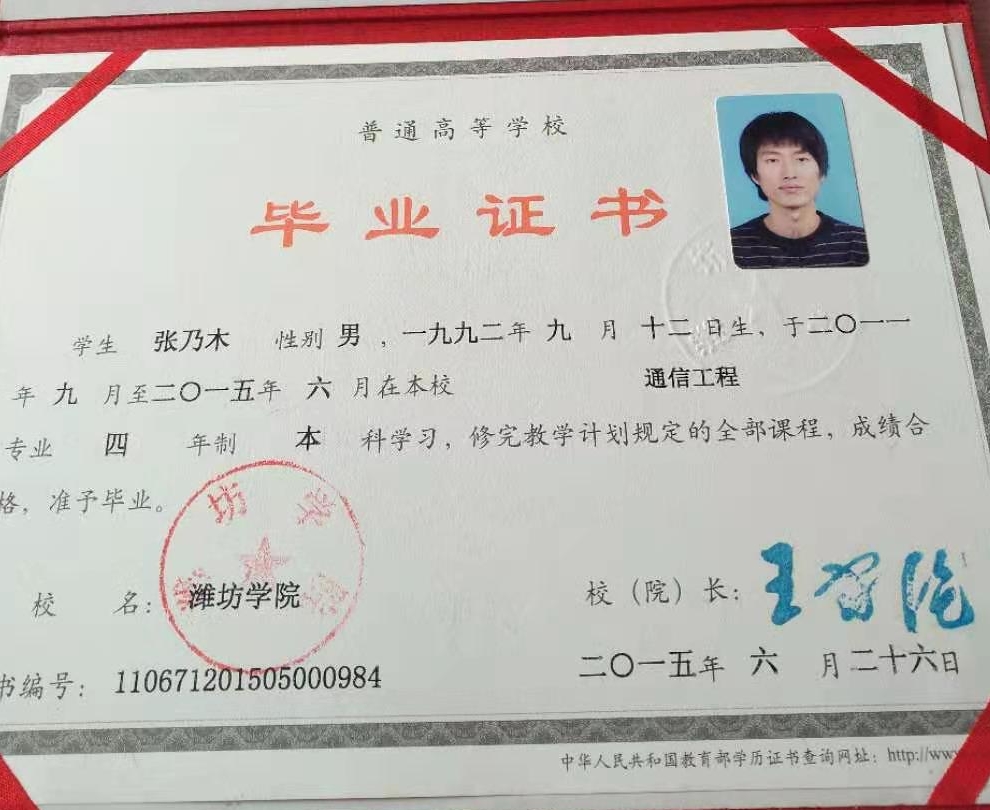 普通高等学校
毕业证书
学生 张乃木 性别 男，一九九二年 九 月 十二 日生，于二〇一一
年 九 月至二〇一五年 六 月在本校 通信工程
专业 四 年制 本 科学习，修完教学计划规定的全部课程，成绩合
格，准予毕业。
校 名：潍坊学院
校（院）长：王
书编号：110671201505000984
二〇一五年 六 月二十六日
中华人民共和国教育部学历证书查询网址：http://www